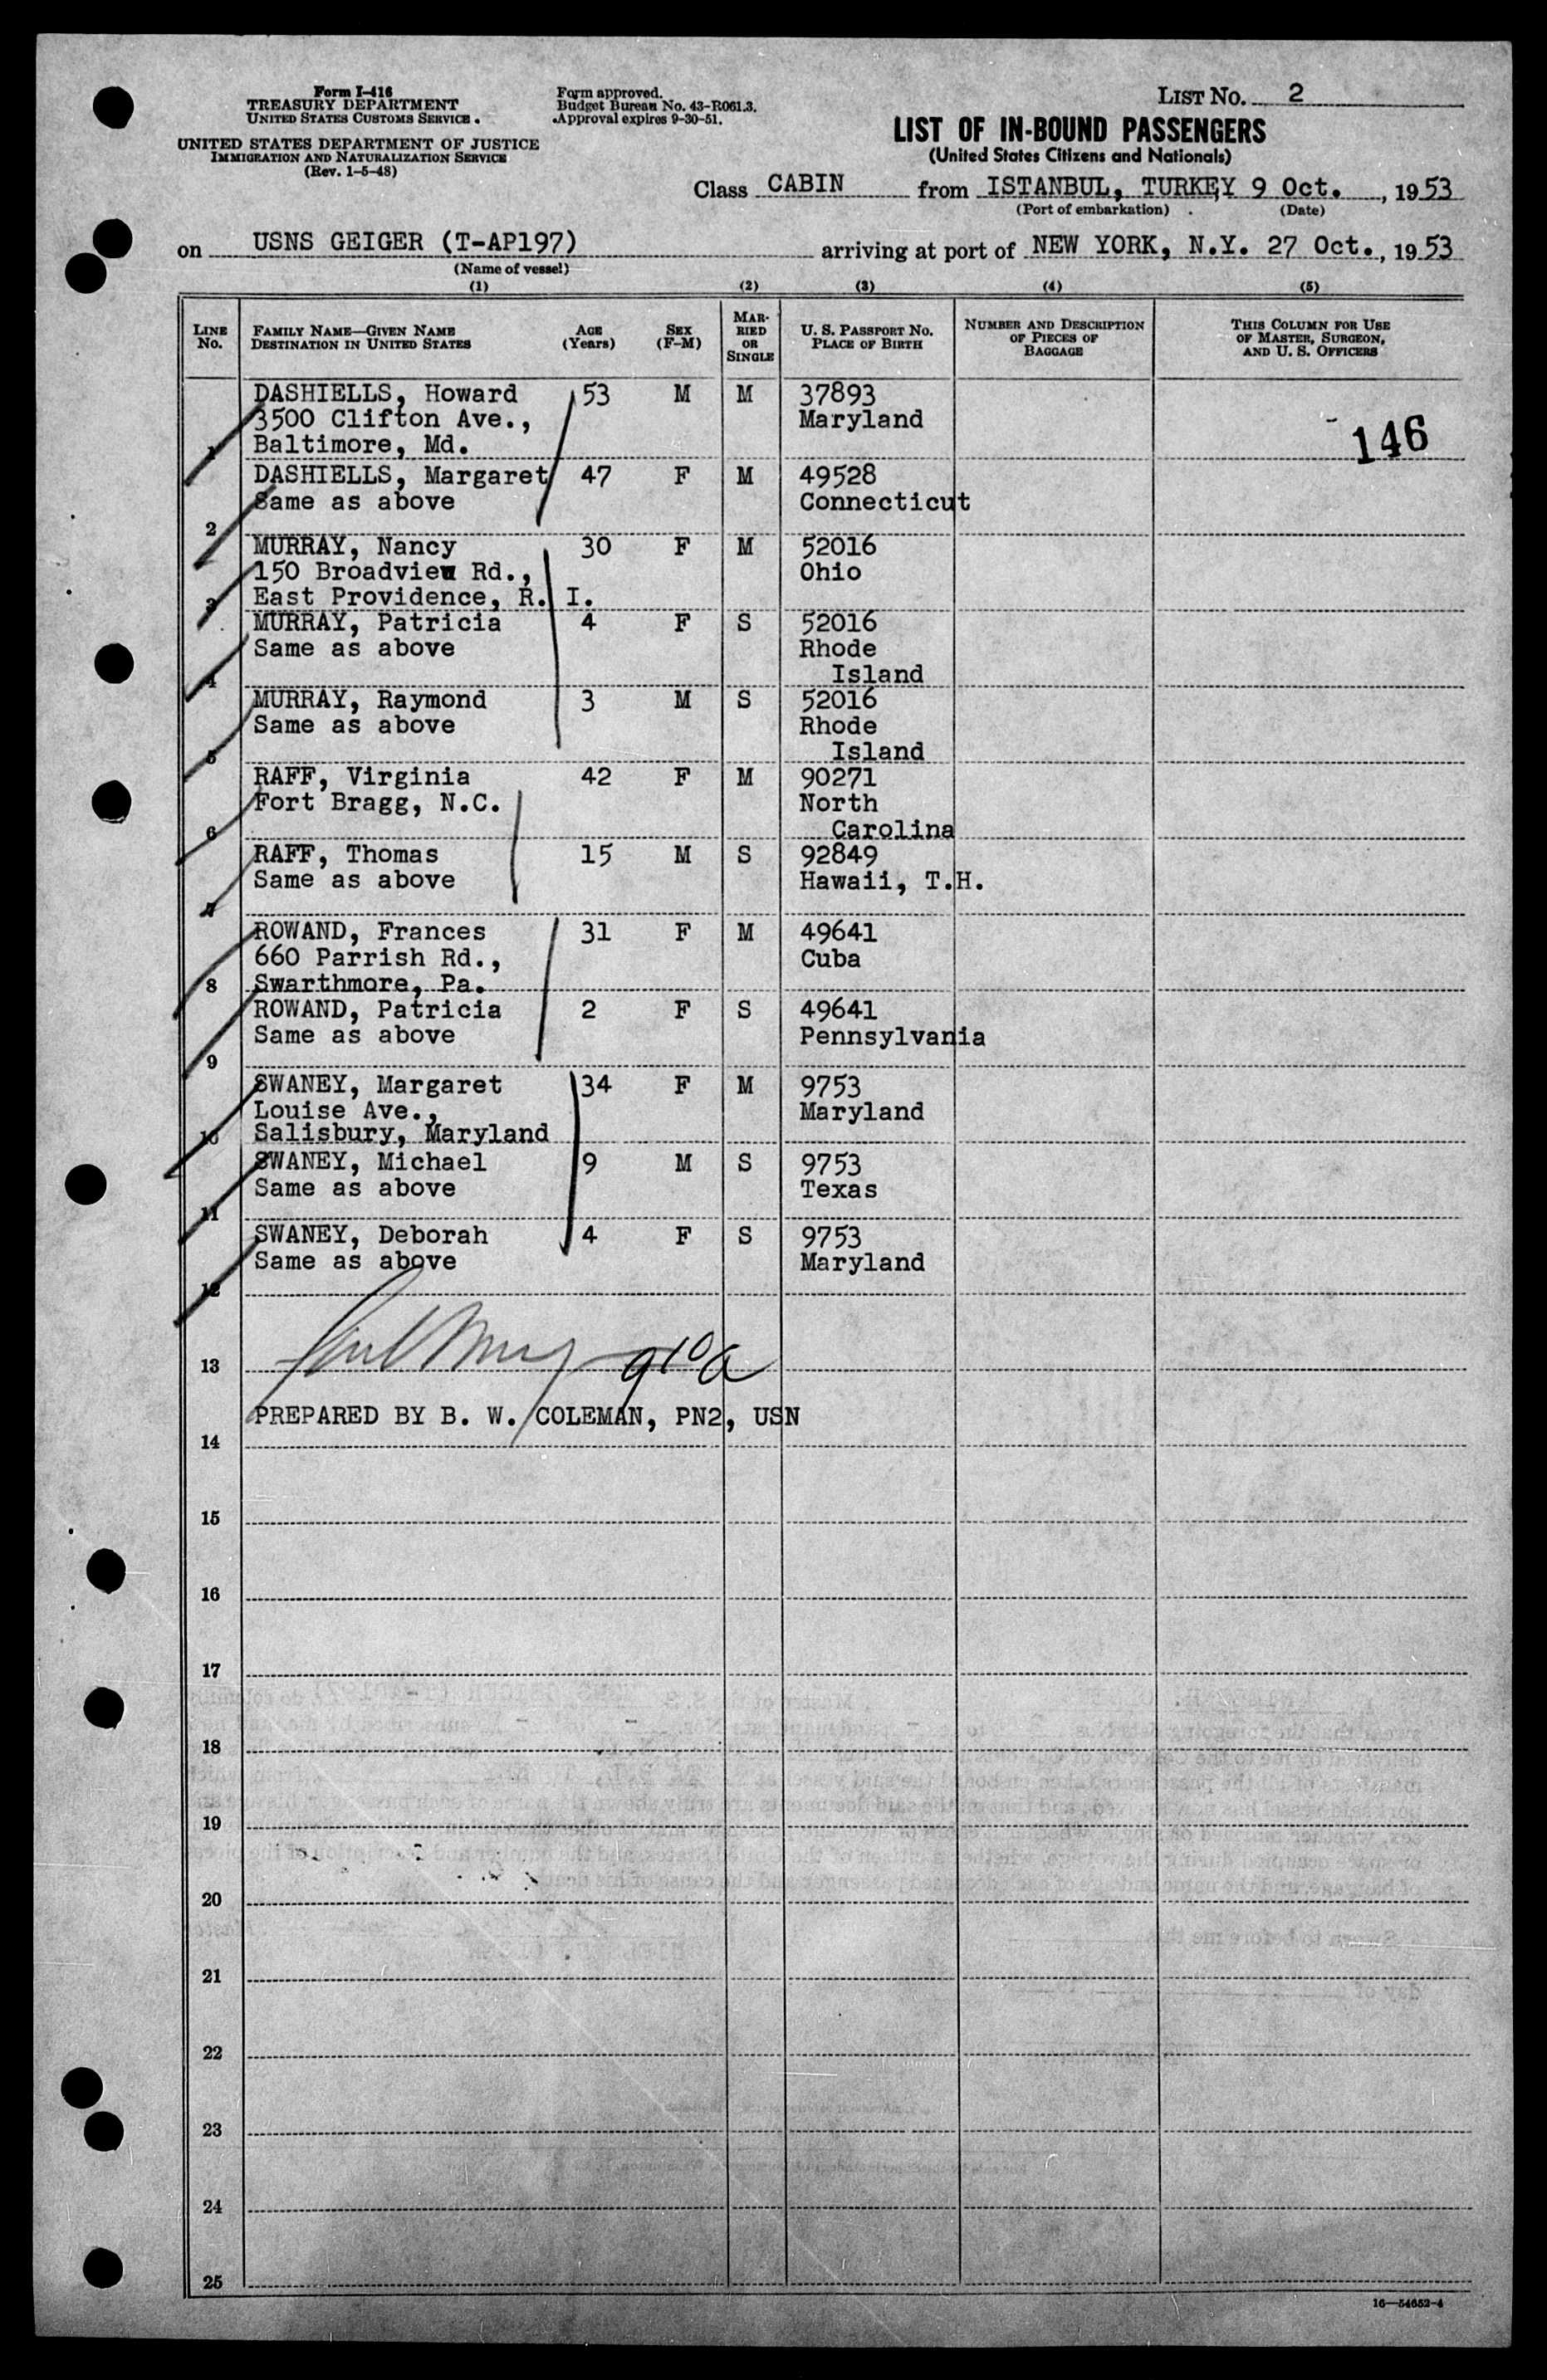 Form I-416
TREASURY DEPARTMENT
UNITED STATES CUSTOMS SERVICE
UNITED STATES DEPARTMENT OF JUSTICE
IMMIGRATION AND NATURALIZATION SERVICE
(Rev. 1-5-48)
Form approved.
Budget Bureau No. 43-R061.3.
Approval expires 9-30-51.
LIST No. 2
LIST OF IN-BOUND PASSENGERS
(United States Citizens and Nationals)
Class CABIN from ISTANBUL, TURKEY 9 Oct., 1953
(Port of embarkation) (Date)
on USNS GEIGER (T-AP197) arriving at port of NEW YORK, N.Y. 27 Oct., 1953
(Name of vessel)
(1) (2) (3) (4) (5)
LINE No.
FAMILY NAME—GIVEN NAME
DESTINATION IN UNITED STATES
AGE (Years)
SEX (F-M)
MARRIED OR SINGLE
U. S. PASSPORT NO.
PLACE OF BIRTH
NUMBER AND DESCRIPTION OF PIECES OF BAGGAGE
THIS COLUMN FOR USE OF MASTER, SURGEON, AND U. S. OFFICERS
DASHIELLS, Howard 53 M M 37893
3500 Clifton Ave., Maryland
146
1 Baltimore, Md.
DASHIELLS, Margaret 47 F M 49528
Same as above Connecticut
2
MURRAY, Nancy 30 F M 52016
150 Broadview Rd., Ohio
3 East Providence, R. I.
MURRAY, Patricia 4 F S 52016
Same as above Rhode
4 Island
MURRAY, Raymond 3 M S 52016
Same as above Rhode
5 Island
RAFF, Virginia 42 F M 90271
Fort Bragg, N.C. North
6 Carolina
RAFF, Thomas 15 M S 92849
Same as above Hawaii, T.H.
7
ROWAND, Frances 31 F M 49641
660 Parrish Rd., Cuba
8 Swarthmore, Pa.
ROWAND, Patricia 2 F S 49641
Same as above Pennsylvania
9
SWANEY, Margaret 34 F M 9753
Louise Ave., Maryland
10 Salisbury, Maryland
SWANEY, Michael 9 M S 9753
Same as above Texas
11
SWANEY, Deborah 4 F S 9753
Same as above Maryland
12
13
PREPARED BY B. W. COLEMAN, PN2, USN
14
15
16
17
18
19
20
21
22
23
24
25
16—54652-4